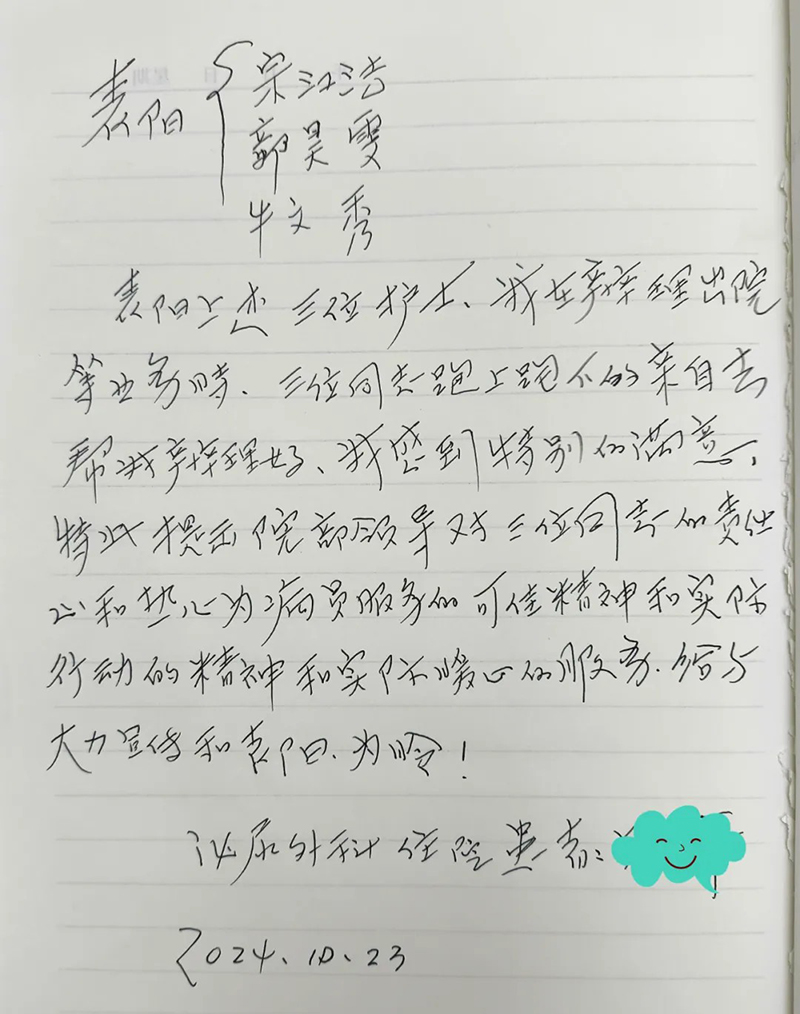 表阳 宗江洁
郭昊雯
牛文秀
表阳上述三位护士、我在辦理出院
等业务时、三位同志跑上跑下的亲自去
帮我辦理好、我感到特别的满意、
特此提出院部领导对三位同志的责任
心和热心为病员服务的可佳精神和实际
行动的精神和实际暖心的服务.给与
大力宣传和表阳.为盼!
泌尿外科住院患者:
2024.10.23